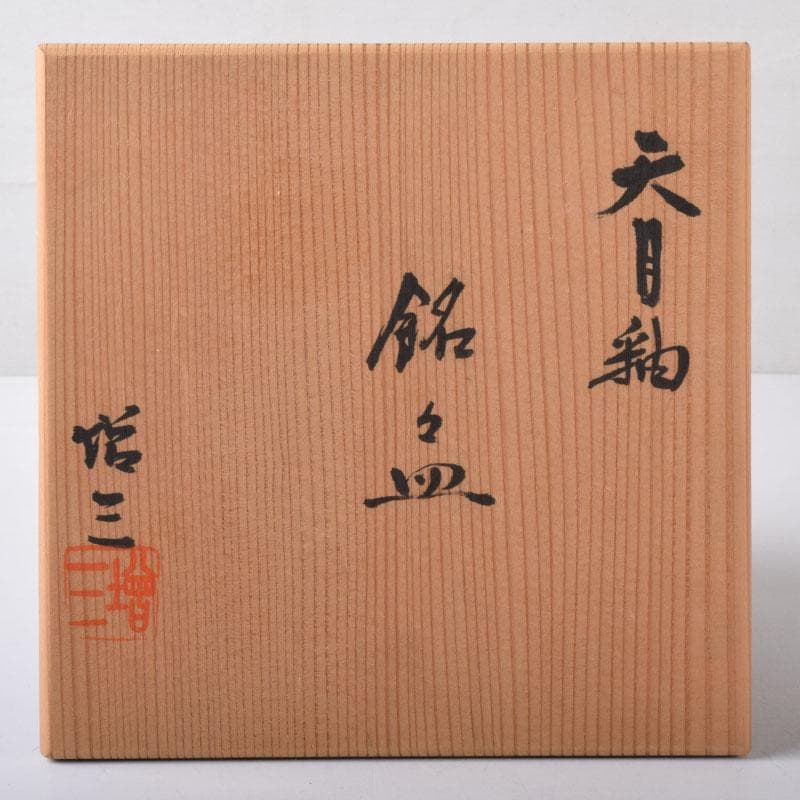 天目釉
銘々皿
増三
増三